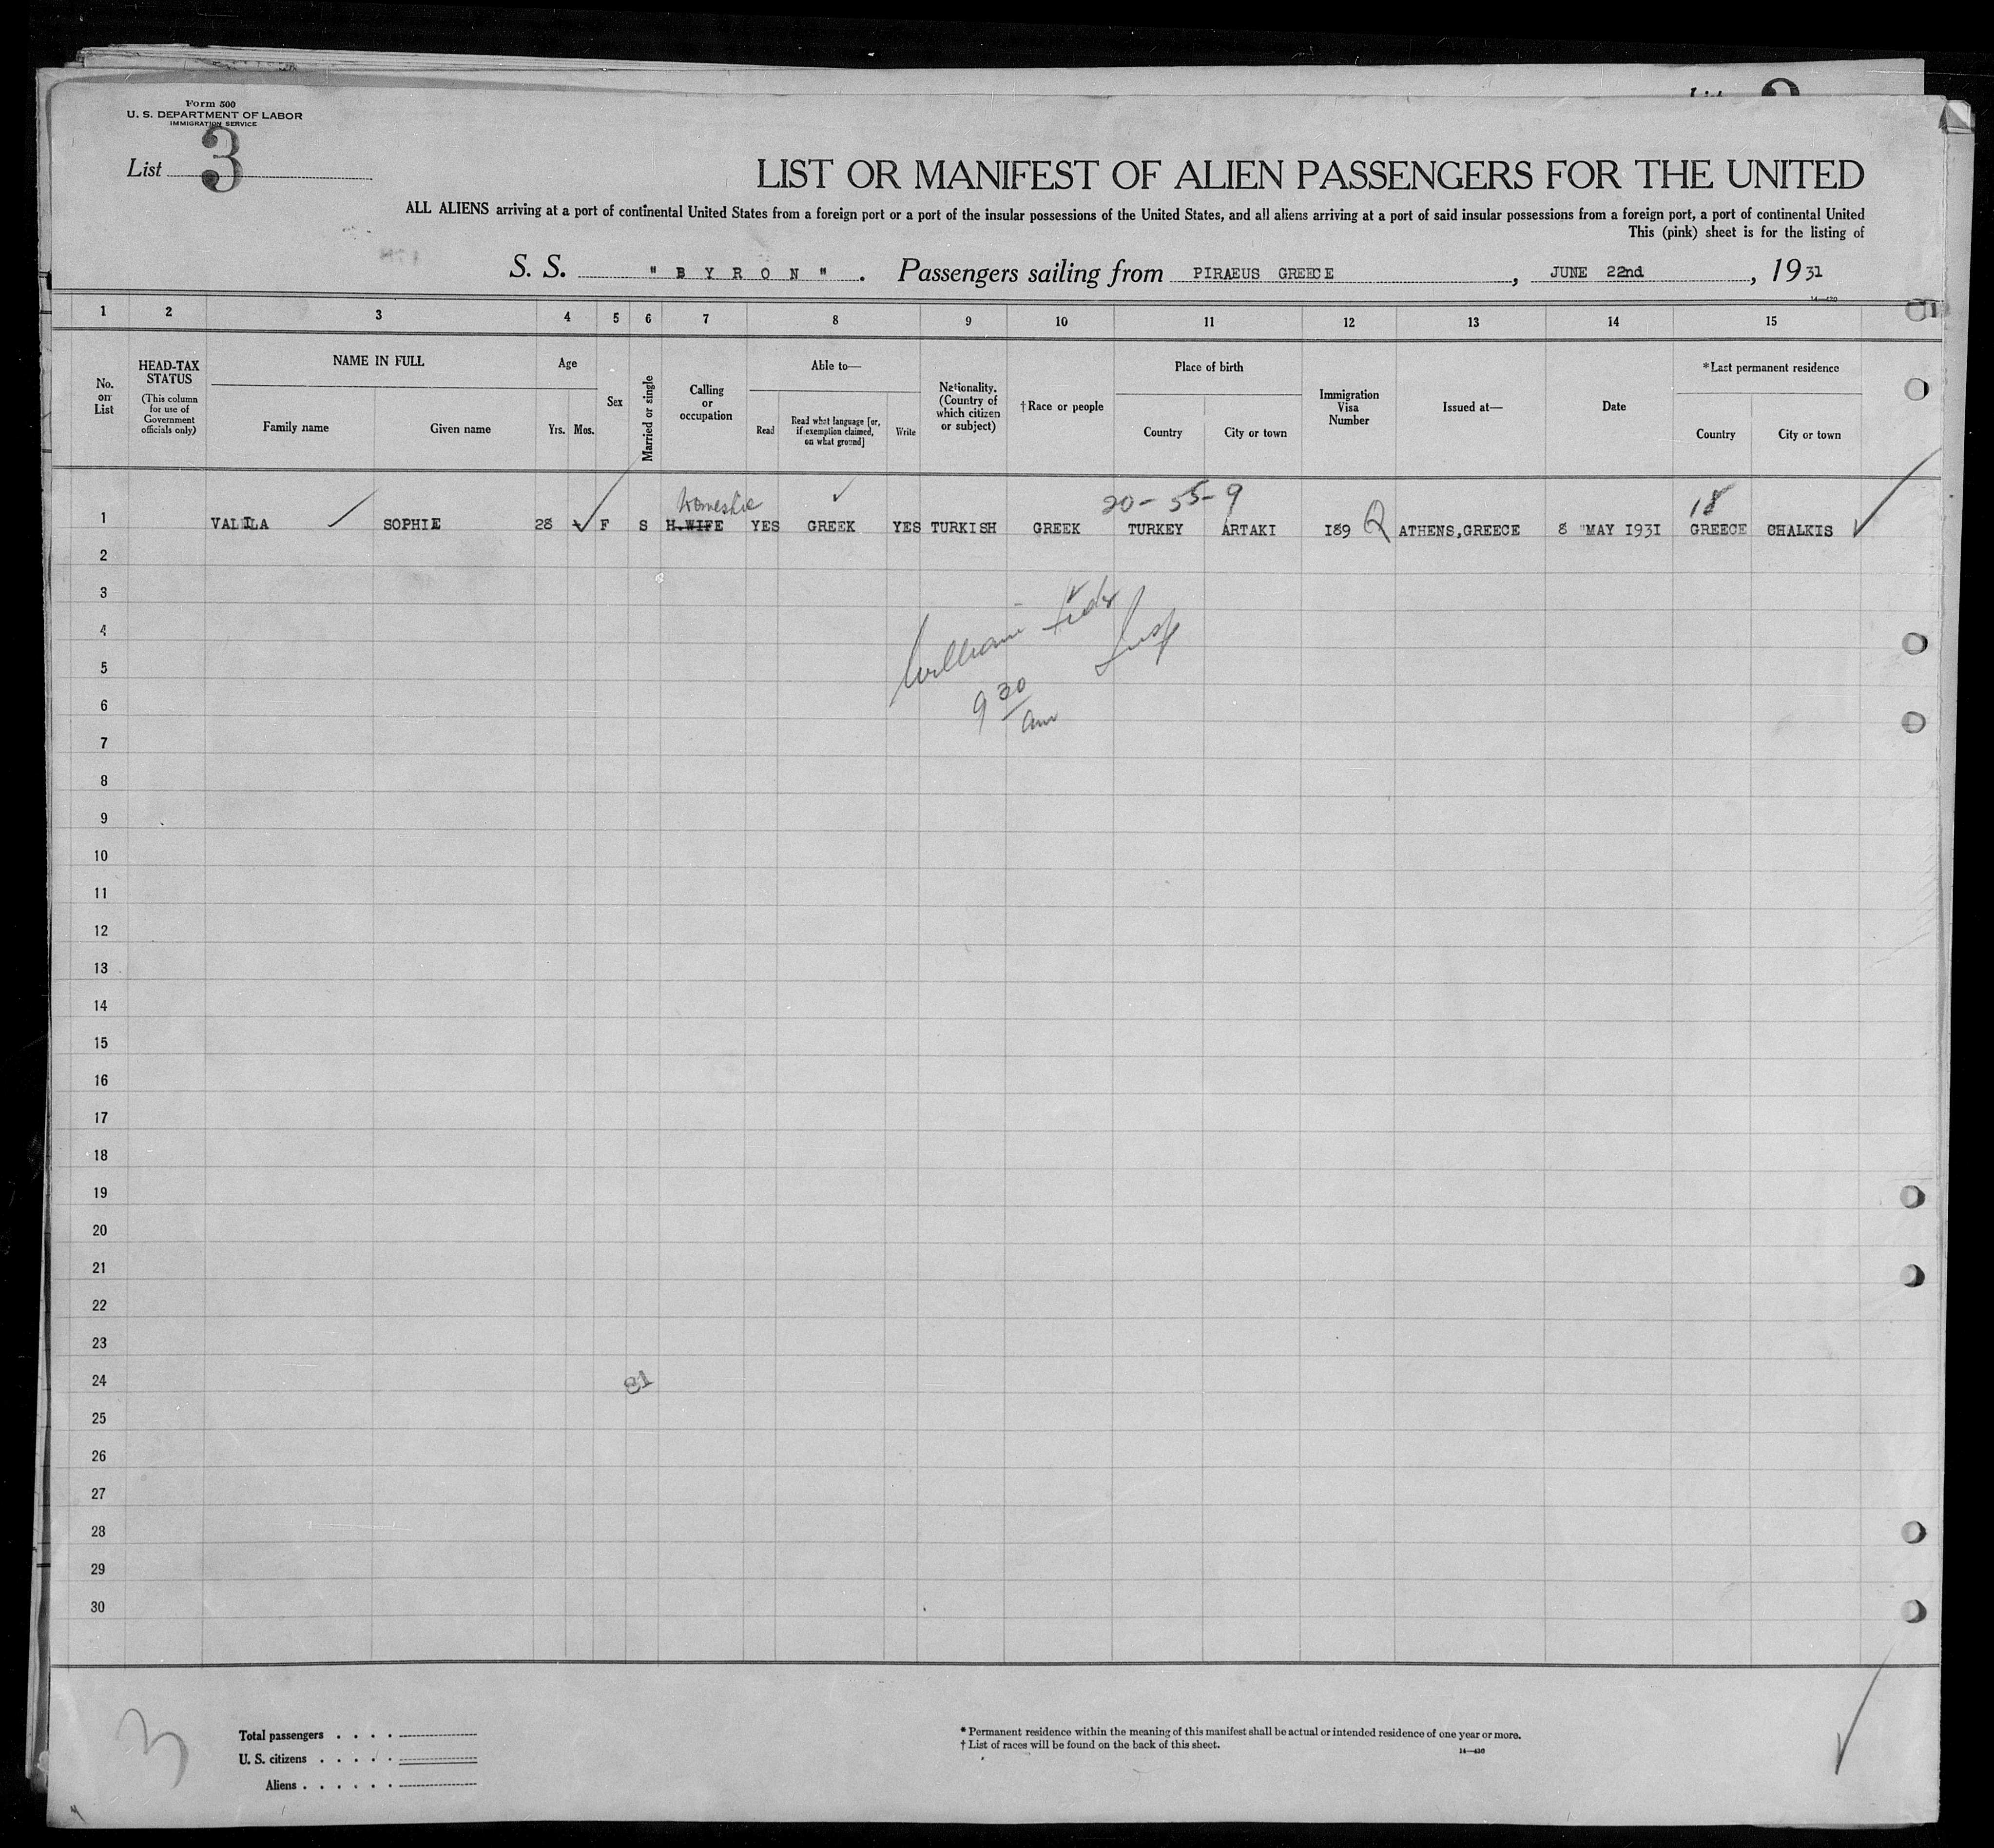 Form 500
U. S. DEPARTMENT OF LABOR
IMMIGRATION SERVICE
List 3
LIST OR MANIFEST OF ALIEN PASSENGERS FOR THE UNITED
ALL ALIENS arriving at a port of continental United States from a foreign port or a port of the insular possessions of the United States, and all aliens arriving at a port of said insular possessions from a foreign port, a port of continental United
This (pink) sheet is for the listing of
S. S. "BYRON". Passengers sailing from PIRAEUS GREECE, JUNE 22nd, 1931
14—430
1 2 3 4 5 6 7 8 9 10 11 12 13 14 15
No. on List
HEAD-TAX STATUS
(This column for use of Government officials only)
NAME IN FULL
Family name
Given name
Age
Yrs. Mos.
Sex
Married or single
Calling or occupation
Able to—
Read
Read what language [or, if exemption claimed, on what ground]
Write
Nationality. (Country of which citizen or subject)
†Race or people
Place of birth
Country
City or town
Immigration Visa Number
Issued at—
Date
*Last permanent residence
Country
City or town
Domestic
20-55-9
18
1 SOPHIE 28 F S H.WIFE YES GREEK YES TURKISH GREEK TURKEY ARTAKI 189 Q ATHENS,GREECE 8 MAY 1931 GREECE CHALKIS
2
3
4
William
Insp
5
6
9 30
am
7
8
9
10
11
12
13
14
15
16
17
18
19
20
21
22
23
24
81
25
26
27
28
29
30
3
Total passengers
U. S. citizens
Aliens
*Permanent residence within the meaning of this manifest shall be actual or intended residence of one year or more.
†List of races will be found on the back of this sheet.
14—430